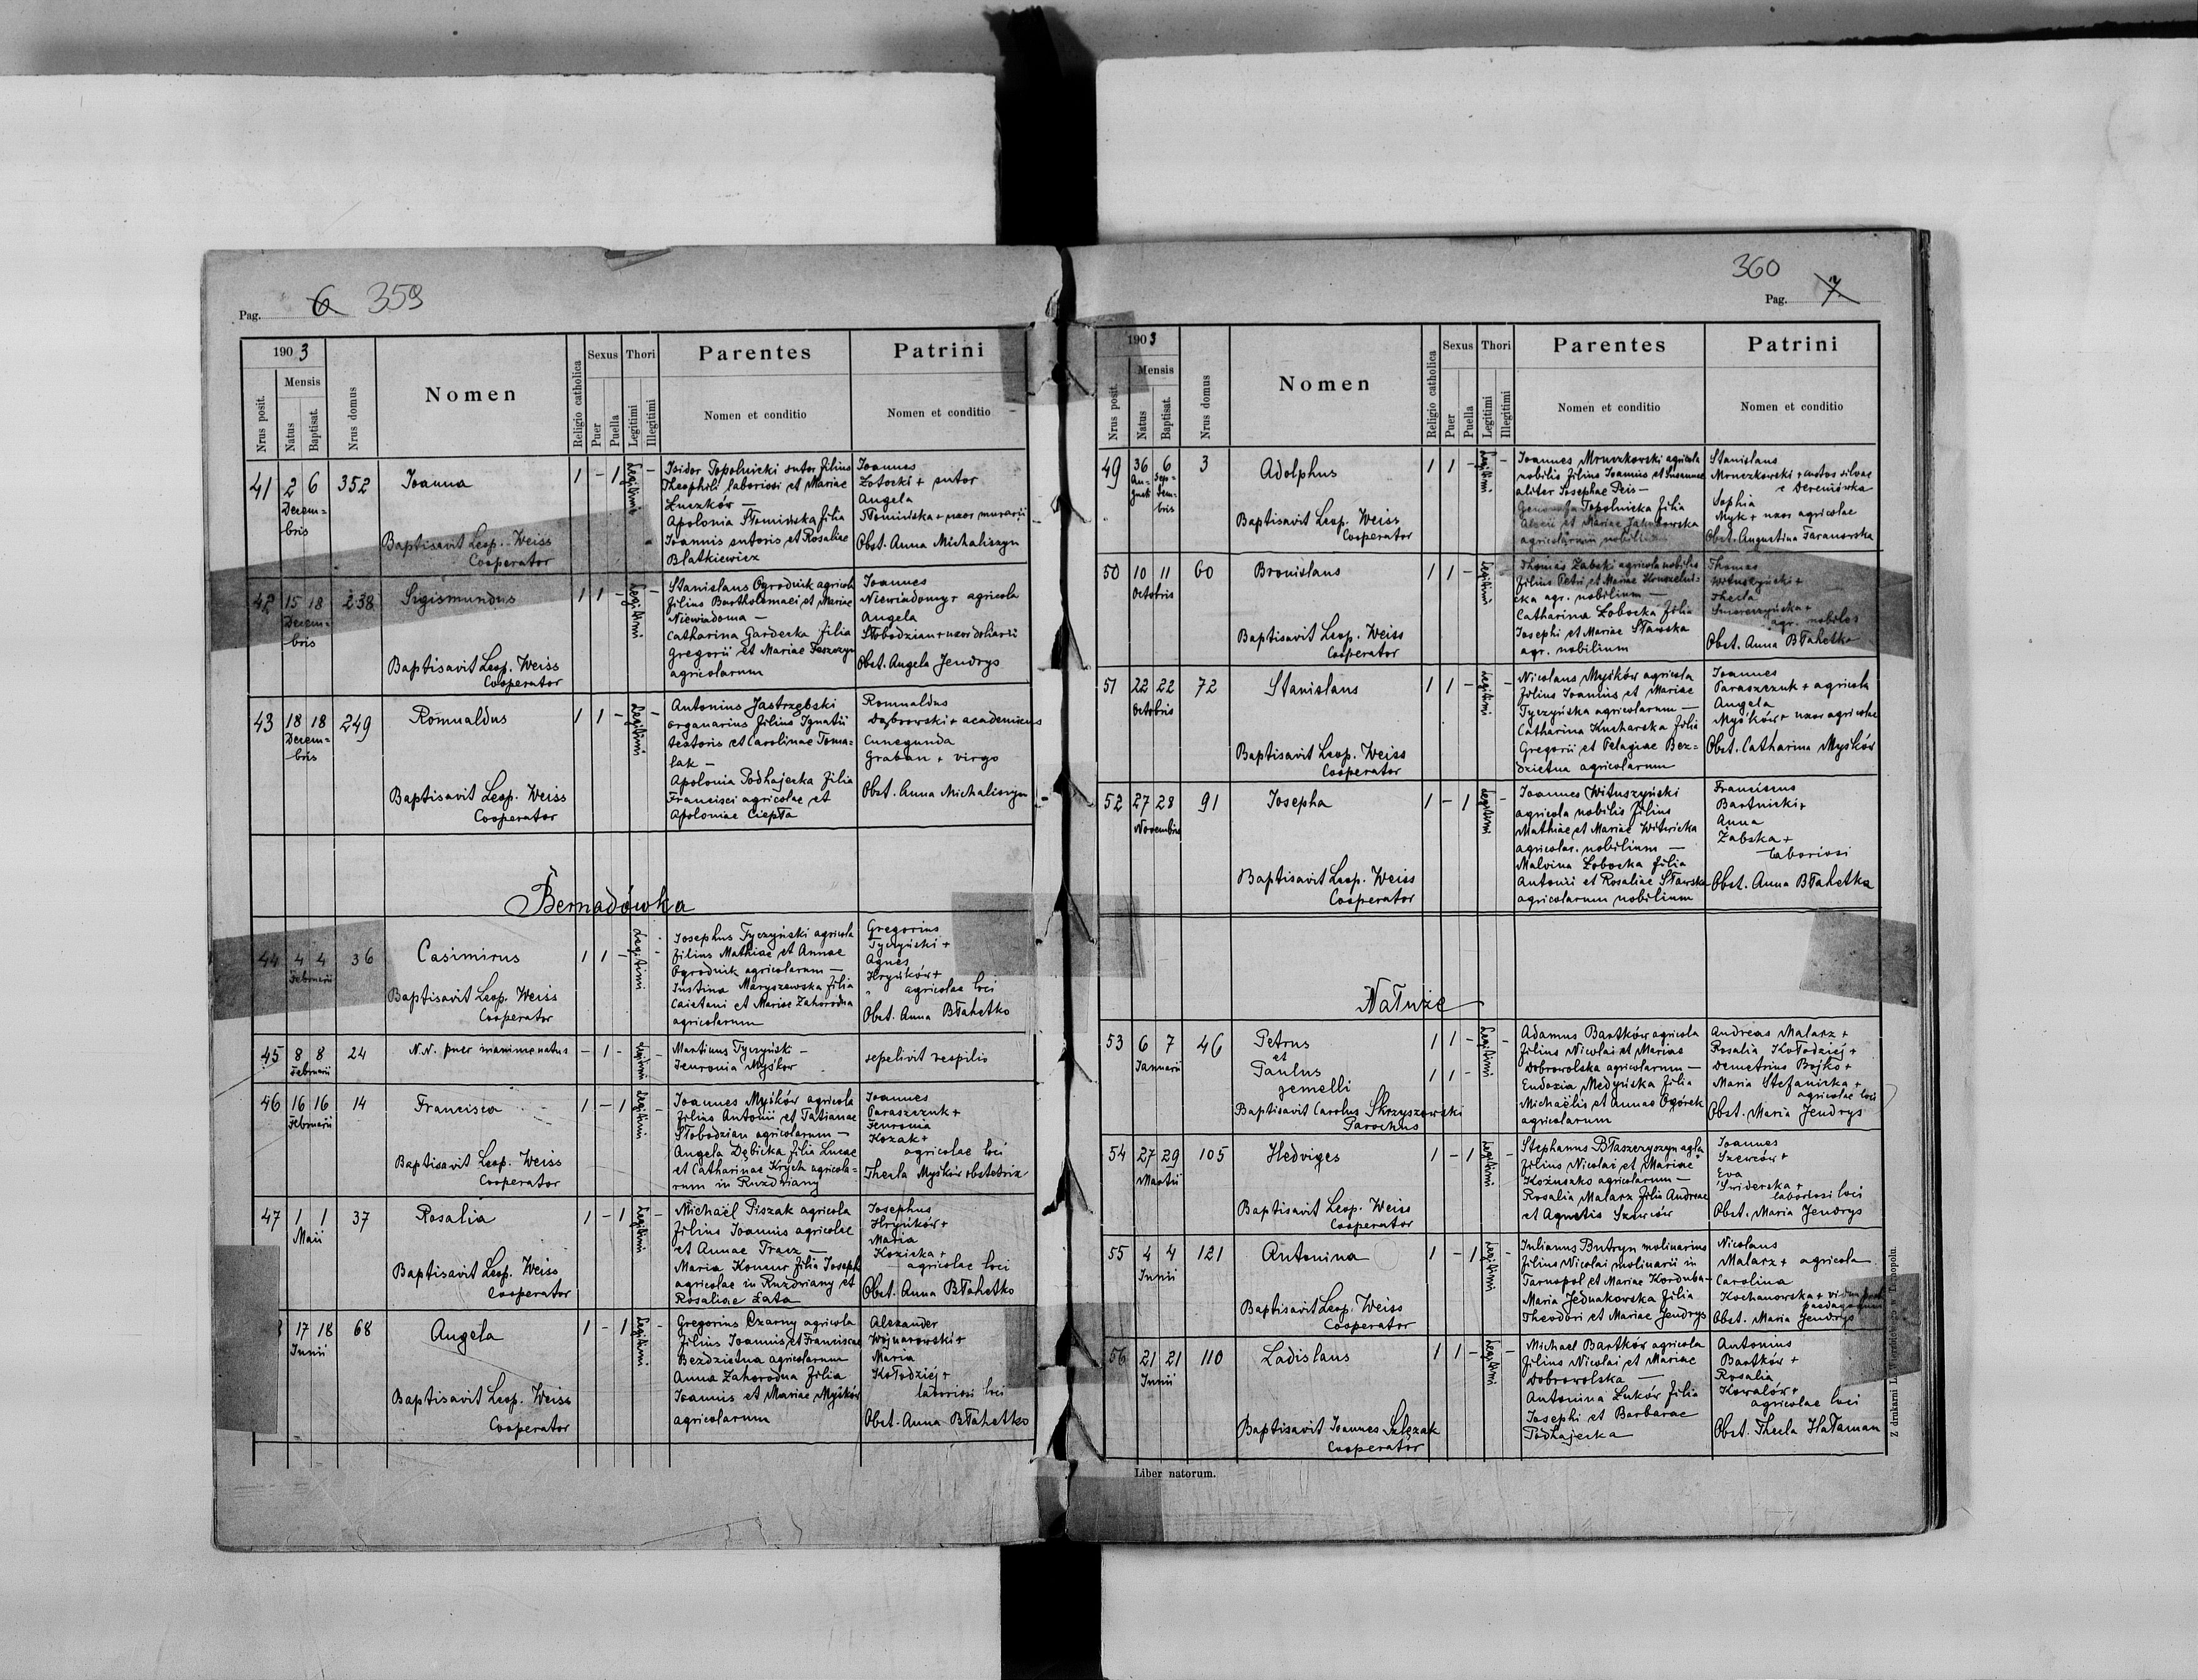 Pag. 6 359
1903
Mensis
Nrus posit.
Natus
Baptisat.
Nrus domus
Nomen
Religio catholica
Sexus
Puer
Puella
Thori
Legitimi
Illegitimi
Parentes
Nomen et conditio
Patrini
Nomen et conditio
41 2 6 352 Joanna 1 – 1 Legitimi –
Decem=
bris
Baptisavit Leop. Weiss
Cooperator
Isidor Topolnicki sutor filius
Theophili laboriosi et Mariae
Łuczków –
Apolonia Słomińska filia
Joannis sutoris et Rosaliae
Blatkiewicz
Joannes
Złotocki + sutor
Angela
Słomińska + uxor murarii
Obst. Anna Michaliszyn
42 15 18 238 Sigismundus 1 1 – Legitimi –
Decem=
bris
Baptisavit Leop. Weiss
Cooperator
Stanislaus Ogrodnik agricola
filius Bartholomaei et Mariae
Niewiadoma –
Catharina Garderka filia
Gregorii et Mariae
agricolarum
Joannes
Niewiadomy + agricola
Angela
Słobodzian + uxor doliarii
Obst. Angela Jendrys
43 18 18 249 Romualdus 1 1 – Legitimi –
Decem=
bris
Baptisavit Leop. Weiss
Cooperator
Antonius Jastrzębski
organarius filius Ignatii
textoris et Carolinae Toma=
lak –
Apolonia Podhajecka filia
Francisci agricolae et
Apoloniae Ciepła
Romualdus
Dąbrowski + academicus
Cunegunda
Graban + virgo
Obst. Anna Michaliszyn
Bernadówka
44 4 4 36 Casimirus 1 1 – Legitimi –
Februarii
Baptisavit Leop. Weiss
Cooperator
Josephus Tyczyński agricola
filius Mathiae et Annae
Ogrodnik agricolarum –
Justina Maryszewska filia
Caietani et Mariae Zahorodna
agricolarum
Gregorius
Tyczyński +
Agnes
Hryńków +
agricolae loci
Obst. Anna Błahetko
45 8 8 24 N.N. puer inanime natus – 1 – Legitimi –
Februarii
Martinus Tyczyński –
Feuronia Myśków
sepelivit vespilio
46 16 16 14 Francisca 1 – 1 Legitimi –
Februarii
Baptisavit Leop. Weiss
Cooperator
Joannes Myśków agricola
filius Antonii et Tatianae
Słobodzian agricolarum –
Angela Dębicka filia Lucae
et Catharinae Krych agricola=
rum in Ruzdwiany
Joannes
Paraszczuk +
Feuronia
Kozak +
agricolae loci
Thecla Myśków obstetrix
47 1 1 37 Rosalia 1 – 1 Legitimi –
Maii
Baptisavit Leop. Weiss
Cooperator
Michaël Piszak agricola
filius Joannis agricolae
et Annae Tracz –
Maria Komur filia Josephi
agricolae in Ruzdwiany et
Rosaliae Łata
Josephus
Hryńków +
Maria
Kozicka +
agricolae loci
Obst. Anna Błahetko
17 18 68 Angela 1 – 1 Legitimi –
Junii
Baptisavit Leop. Weiss
Cooperator
Gregorius Czarny agricola
filius Joannis et Franciscae
Bezdzietna agricolarum
Anna Zahorodna filia
Joannis et Mariae Myśków
agricolarum
Alexander
Wojnarowski +
Maria
Kołodziej +
laboriosi loci
Obst. Anna Błahetko
360
Pag. 7
1903
Mensis
Nrus posit.
Natus
Baptisat.
Nrus domus
Nomen
Religio catholica
Sexus
Puer
Puella
Thori
Legitimi
Illegitimi
Parentes
Nomen et conditio
Patrini
Nomen et conditio
49 36 6 3 Adolphus 1 1 – Legitimi –
Au=
gusti
Sep=
tem=
bris
Baptisavit Leop. Weiss
Cooperator
Joannes Mruczkowski agricola
nobilis filius Joannis et Susannae
aliter Josephae Peis –
Genovefa Topolnicka filia
Alexii et Mariae Jakubowska
agricolarum nobilium
Stanislaus
Mruczkowski + custos silvae
e Dereniówka
Sophia
Myk + uxor agricolae
Obst. Augustina Taranowska
50 10 11 60 Bronislaus 1 1 – Legitimi
Octobris
Baptisavit Leop. Weiss
Cooperator
Thomas Żabski agricola nobilis
filius Petri et Mariae
cka agr. nobilium –
Catharina Łobocka filia
Josephi et Mariae Sławska
agr. nobilium
Thomas
Wituszyński +
Thecla
Smereczyńska +
agr. nobiles
Obst. Anna Błahetka
51 22 22 72 Stanislaus 1 1 – Legitimi –
Octobris
Baptisavit Leop. Weiss
Cooperator
Nicolaus Myśków agricola
filius Joannis et Mariae
Tyczyńska agricolarum –
Catharina Kucharska filia
Gregorii et Pelagiae Bez=
dzietna agricolarum
Joannes
Paraszczuk + agricola
Angela
Myśków + uxor agricolae
Obst. Catharina Myśków
52 27 28 91 Josepha 1 – 1 Legitimi –
Novembris
Baptisavit Leop. Weiss
Cooperator
Joannes Wituszyński
agricola nobilis filius
Mathiae et Mariae Witwicka
agricolar. nobilium –
Malvina Łobocka filia
Antonii et Rosaliae Sławska
agricolarum nobilium
Franciscus
Bartnicki +
Anna
Żabska +
laboriosi
Obst. Anna Błahetka
Nałuże
53 6 7 46 Petrus 1 1 – Legitimi –
Januarii
et
Paulus 1 1 –
gemelli
Baptisavit Carolus Skrzyszowski
Parochus
Adamus Bartków agricola
filius Nicolai et Mariae
Dobrowolska agricolarum –
Eudoxia Medyńska filia
Michaëlis et Annae Ogórek
agricolarum
Andreas Malarz +
Rosalia Kołodziej +
Demetrius Bojko +
Maria Stefanicka +
agricolae loci
Obst. Maria Jendrys
54 27 29 105 Hedviges 1 – 1 Legitimi –
Martii
Baptisavit Leop. Weiss
Cooperator
Stephanus Błaszczyszyn agla
filius Nicolai et Mariae
Kożuszko agricolarum –
Rosalia Malarz filia Andreae
et Agnetis Szewców
Joannes
Szewców +
Eva
Świderska +
laboriosi loci
Obst. Maria Jendrys
55 4 4 121 Antonina 1 – 1 Legitimi –
Junii
Baptisavit Leop. Weiss
Cooperator
Julianus Butryn molinarius
filius Nicolai molinarii in
Tarnopol et Mariae Korduba –
Maria Jednakowska filia
Theodori et Mariae Jendrys
Nicolaus
Malarz + agricola
Carolina
Kochanowska +
Obst. Maria Jendrys
56 21 21 110 Ladislaus 1 1 – Legitimi –
Junii
Baptisavit Joannes Ślęzak
Cooperator
Michael Bartków agricola
filius Nicolai et Mariae
Dobrowolska –
Antonina Łuków filia
Josephi et Barbarae
Podhajecka
Antonius
Bartków +
Rosalia
Kowalów +
agricolae loci
Obst. Thecla Hałaman
Liber natorum.
Z drukarni L. Wierzbickiego w Tarnopolu.